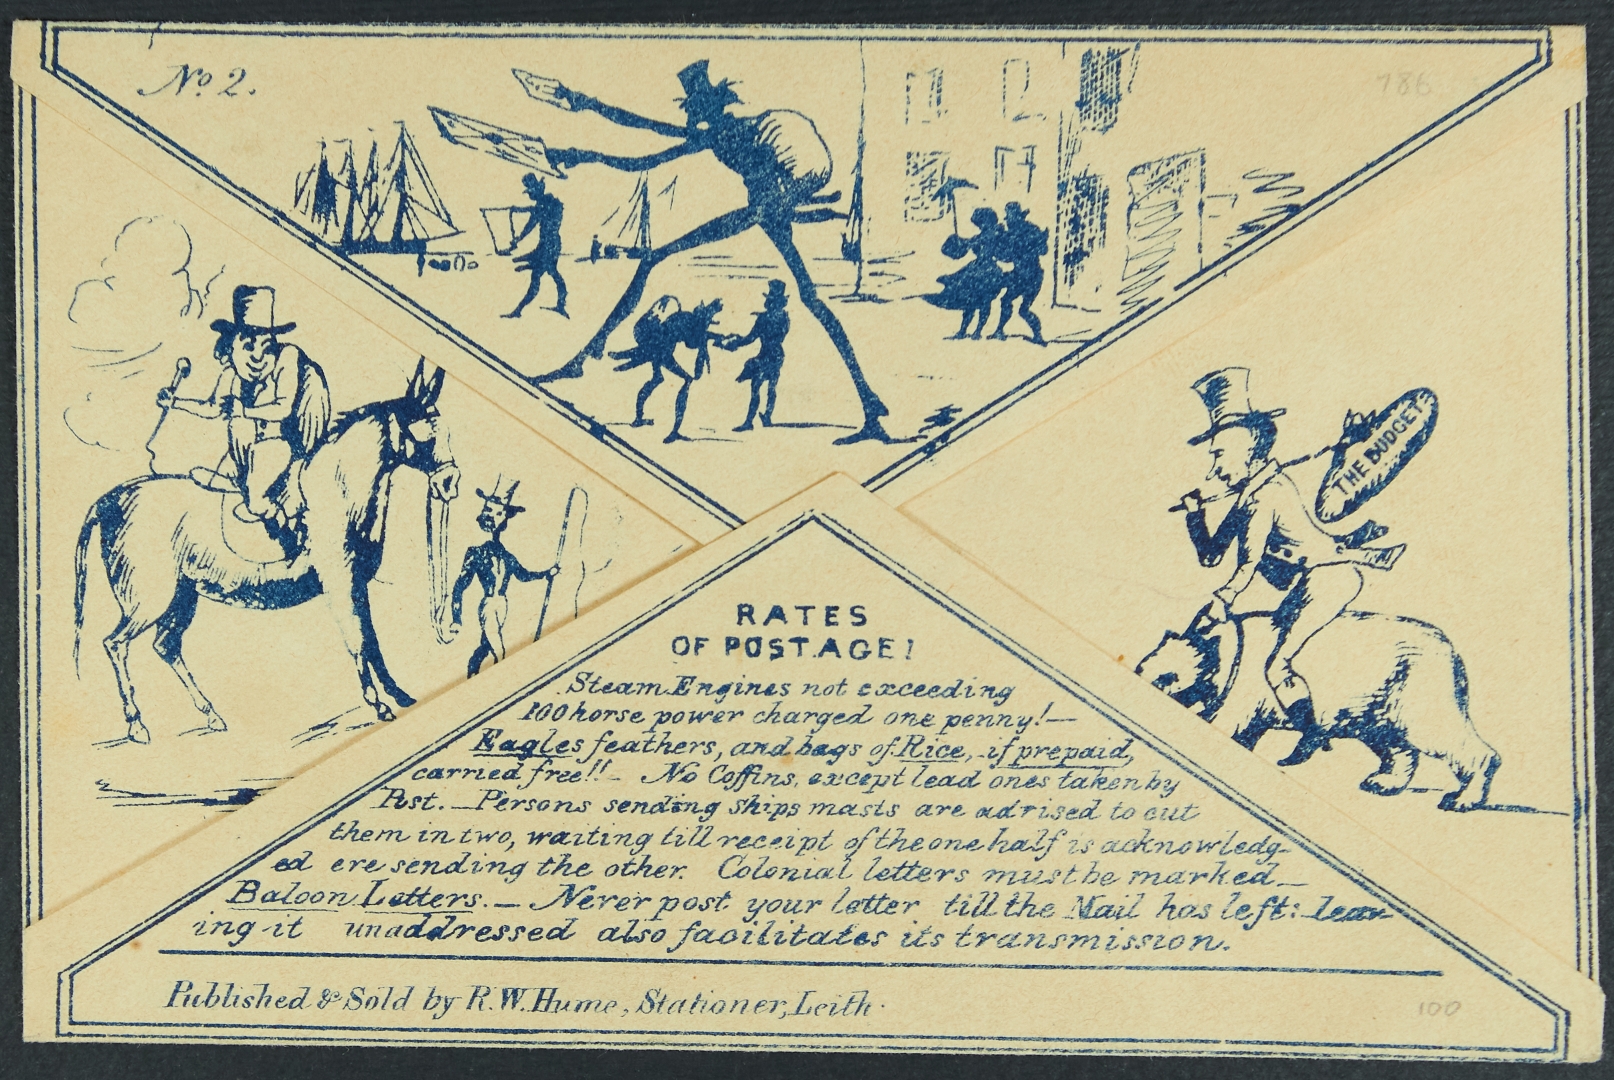 No. 2.
786
THE BUDGET
RATES
OF POSTAGE!
Steam Engines not exceeding
100 horse power charged one penny!—
Eagles feathers, and bags of Rice, if prepaid,
carried free!!— No Coffins, except lead ones taken by
Post.—Persons sending ships masts are advised to cut
them in two, waiting till receipt of the one half is acknowledg-
ed ere sending the other. Colonial letters must be marked—
Baloon Letters.— Never post your letter till the Mail has left: leav-
ing it unaddressed also facilitates its transmission.
Published & Sold by R. W. Hume, Stationer, Leith.
100